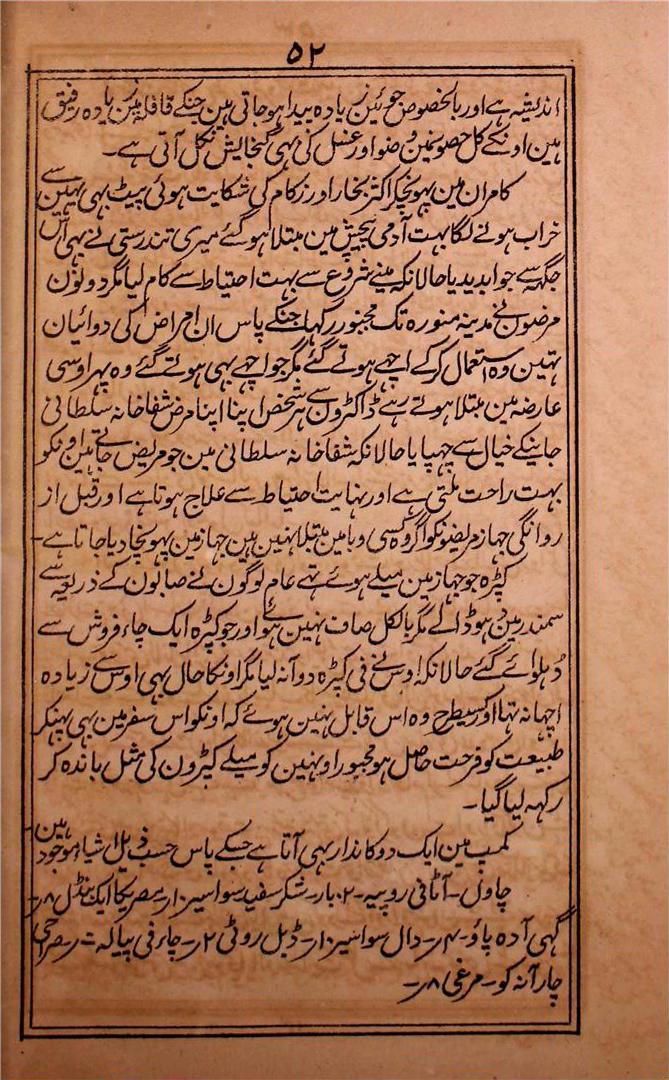 ۵۲
اندیشہ ہے اور بالخصوص جوئین زیادہ پیدا ہو جاتی ہین جنکے قافلہ مین زیادہ رفیق
ہین اونکے کل حصونمین وضو اور غسل کی بہی گنجایش نکل آتی ہے۔
کامران مین پہونچکر اکثر بخار اور زکام کی شکایت ہوئی پیٹ بہی یہین سے
خراب ہونے لگا بہت آدمی پیچپش مین مبتلا ہو گئے میری تندرستی نے بہی اس
جگہہ سے جوابدیدیا حالانکہ مینے شروع سے بہت احتیاط سے کام لیا مگر دونون
مرضون نے مدینہ منورہ تک مجبور رکہا جنکے پاس ان امراض کی دوائیان
تہین وہ استعمال کرکے اچہے ہوتے گئے مگر جو اچہے بہی ہوتے گئے وہ پہر اوسی
عارضہ مین مبتلا ہوتے رہے ڈاکٹرون سے ہر شخص اپنا اپنا مرض شفاخانہ سلطانی
جانیکے خیال سے چہپایا حالانکہ شفاخانہ سلطانی مین جو مریض جاتے ہین اونکو
بہت راحت ملتی ہے اور نہایت احتیاط سے علاج ہوتا ہے اور قبل از
روانگی جہاز مریضونکو اگر وہ کسی وبا مین مبتلا نہین ہین جہاز مین پہونچا دیا جاتا ہے۔
کپڑہ جو جہاز مین میلے ہوئے تہے عام لوگون نے صابون کے ذریعہ سے
سمندر مین دہو ڈالے مگر بالکل صاف نہین ہوئے اور جو کپڑہ ایک چاء فروش سے
دُہلوائے گئے حالانکہ اوس نے فی کپڑہ دو آنہ لیا مگر اونکا حال بہی اوس سے زیادہ
اچہا نہ تہا اور کسیطرح وہ اس قابل نہین ہوئے کہ اونکو اس سفر مین بہی پہنکر
طبیعت کو فرحت حاصل ہو مجبور اونہین کو میلے کپڑون کی مثل باندہ کر
رکہہ لیا گیا۔
کمپ مین ایک دوکاندار بہی آتا ہے جسکے پاس حسب ذیل اشیاء موجود ہین
چاول۔ آٹا فی روپیہ۔ ۲ بار۔ شکر سفید سوا سیر ۱۰ر۔ مصریکا ایک بنڈل ۸ر۔
گہی آدہ پاؤ۔ ۴ر۔ دال سوا سیر ۱۰ر۔ ڈبل روٹی ۲ر۔ چاء فی پیالہ۔ صراحی
چار آنہ کو۔ مرغی ۸ر۔